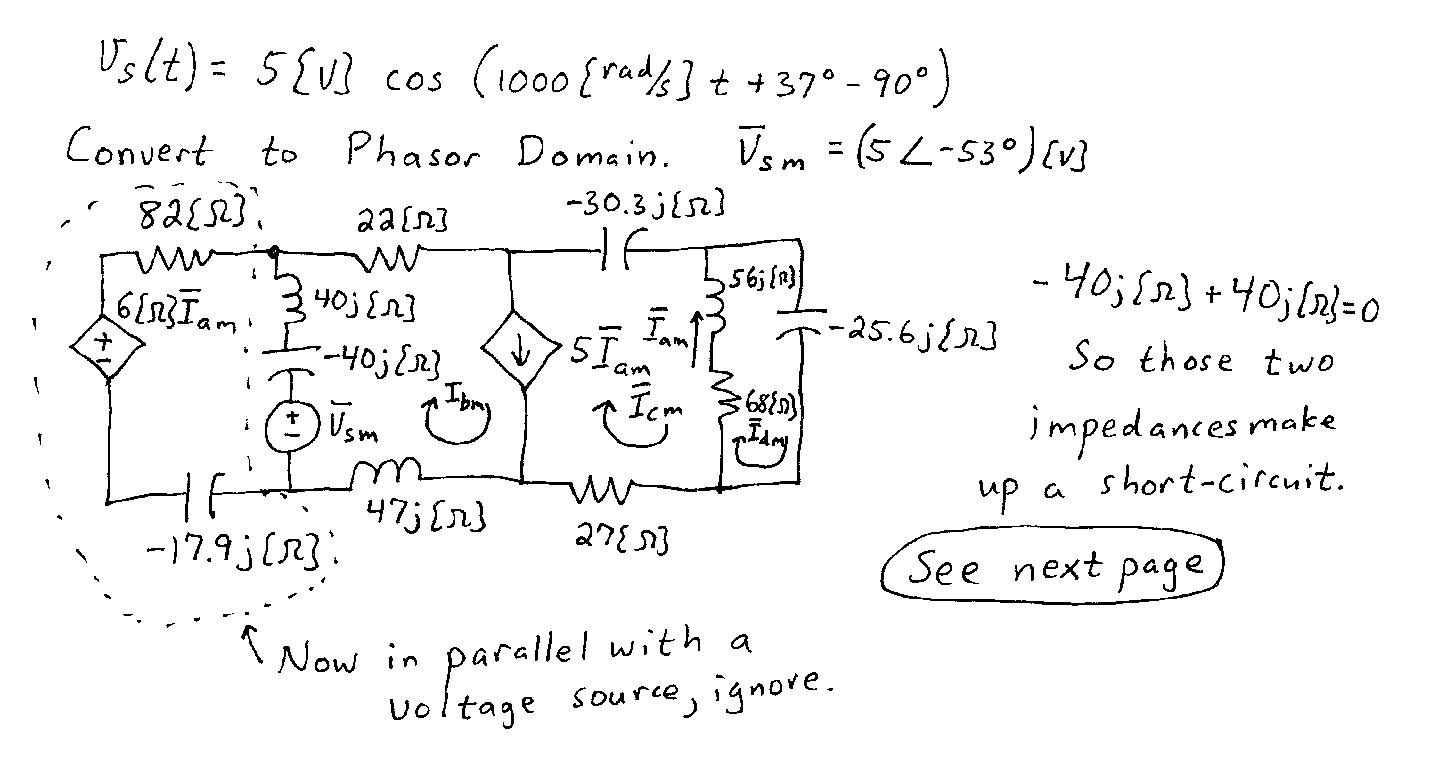 v_s(t) = 5{V} cos (1000{rad/s} t + 37° - 90°)
Convert to Phasor Domain. V̅sm = (5∠-53°){V}
82{Ω}
22{Ω}
-30.3j{Ω}
6{Ω}I̅am
40j{Ω}
-40j{Ω}
+
-
V̅sm
+
-
Ibm
5I̅am
I̅cm
I̅am
56j{Ω}
68{Ω}
I̅dm
-25.6j{Ω}
-17.9j{Ω}
47j{Ω}
27{Ω}
-40j{Ω}+40j{Ω}=0
So those two
impedances make
up a short-circuit.
See next page
Now in parallel with a
voltage source, ignore.